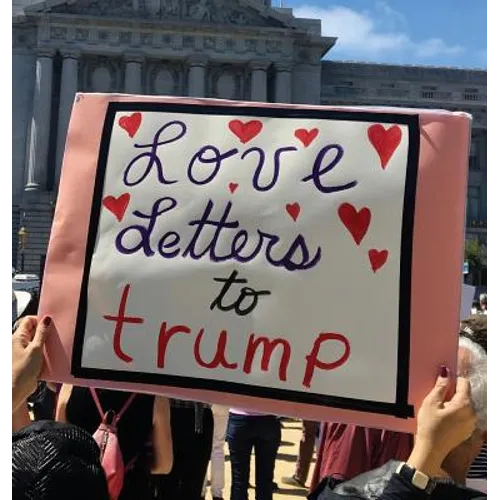 Love
Letters
to
trump